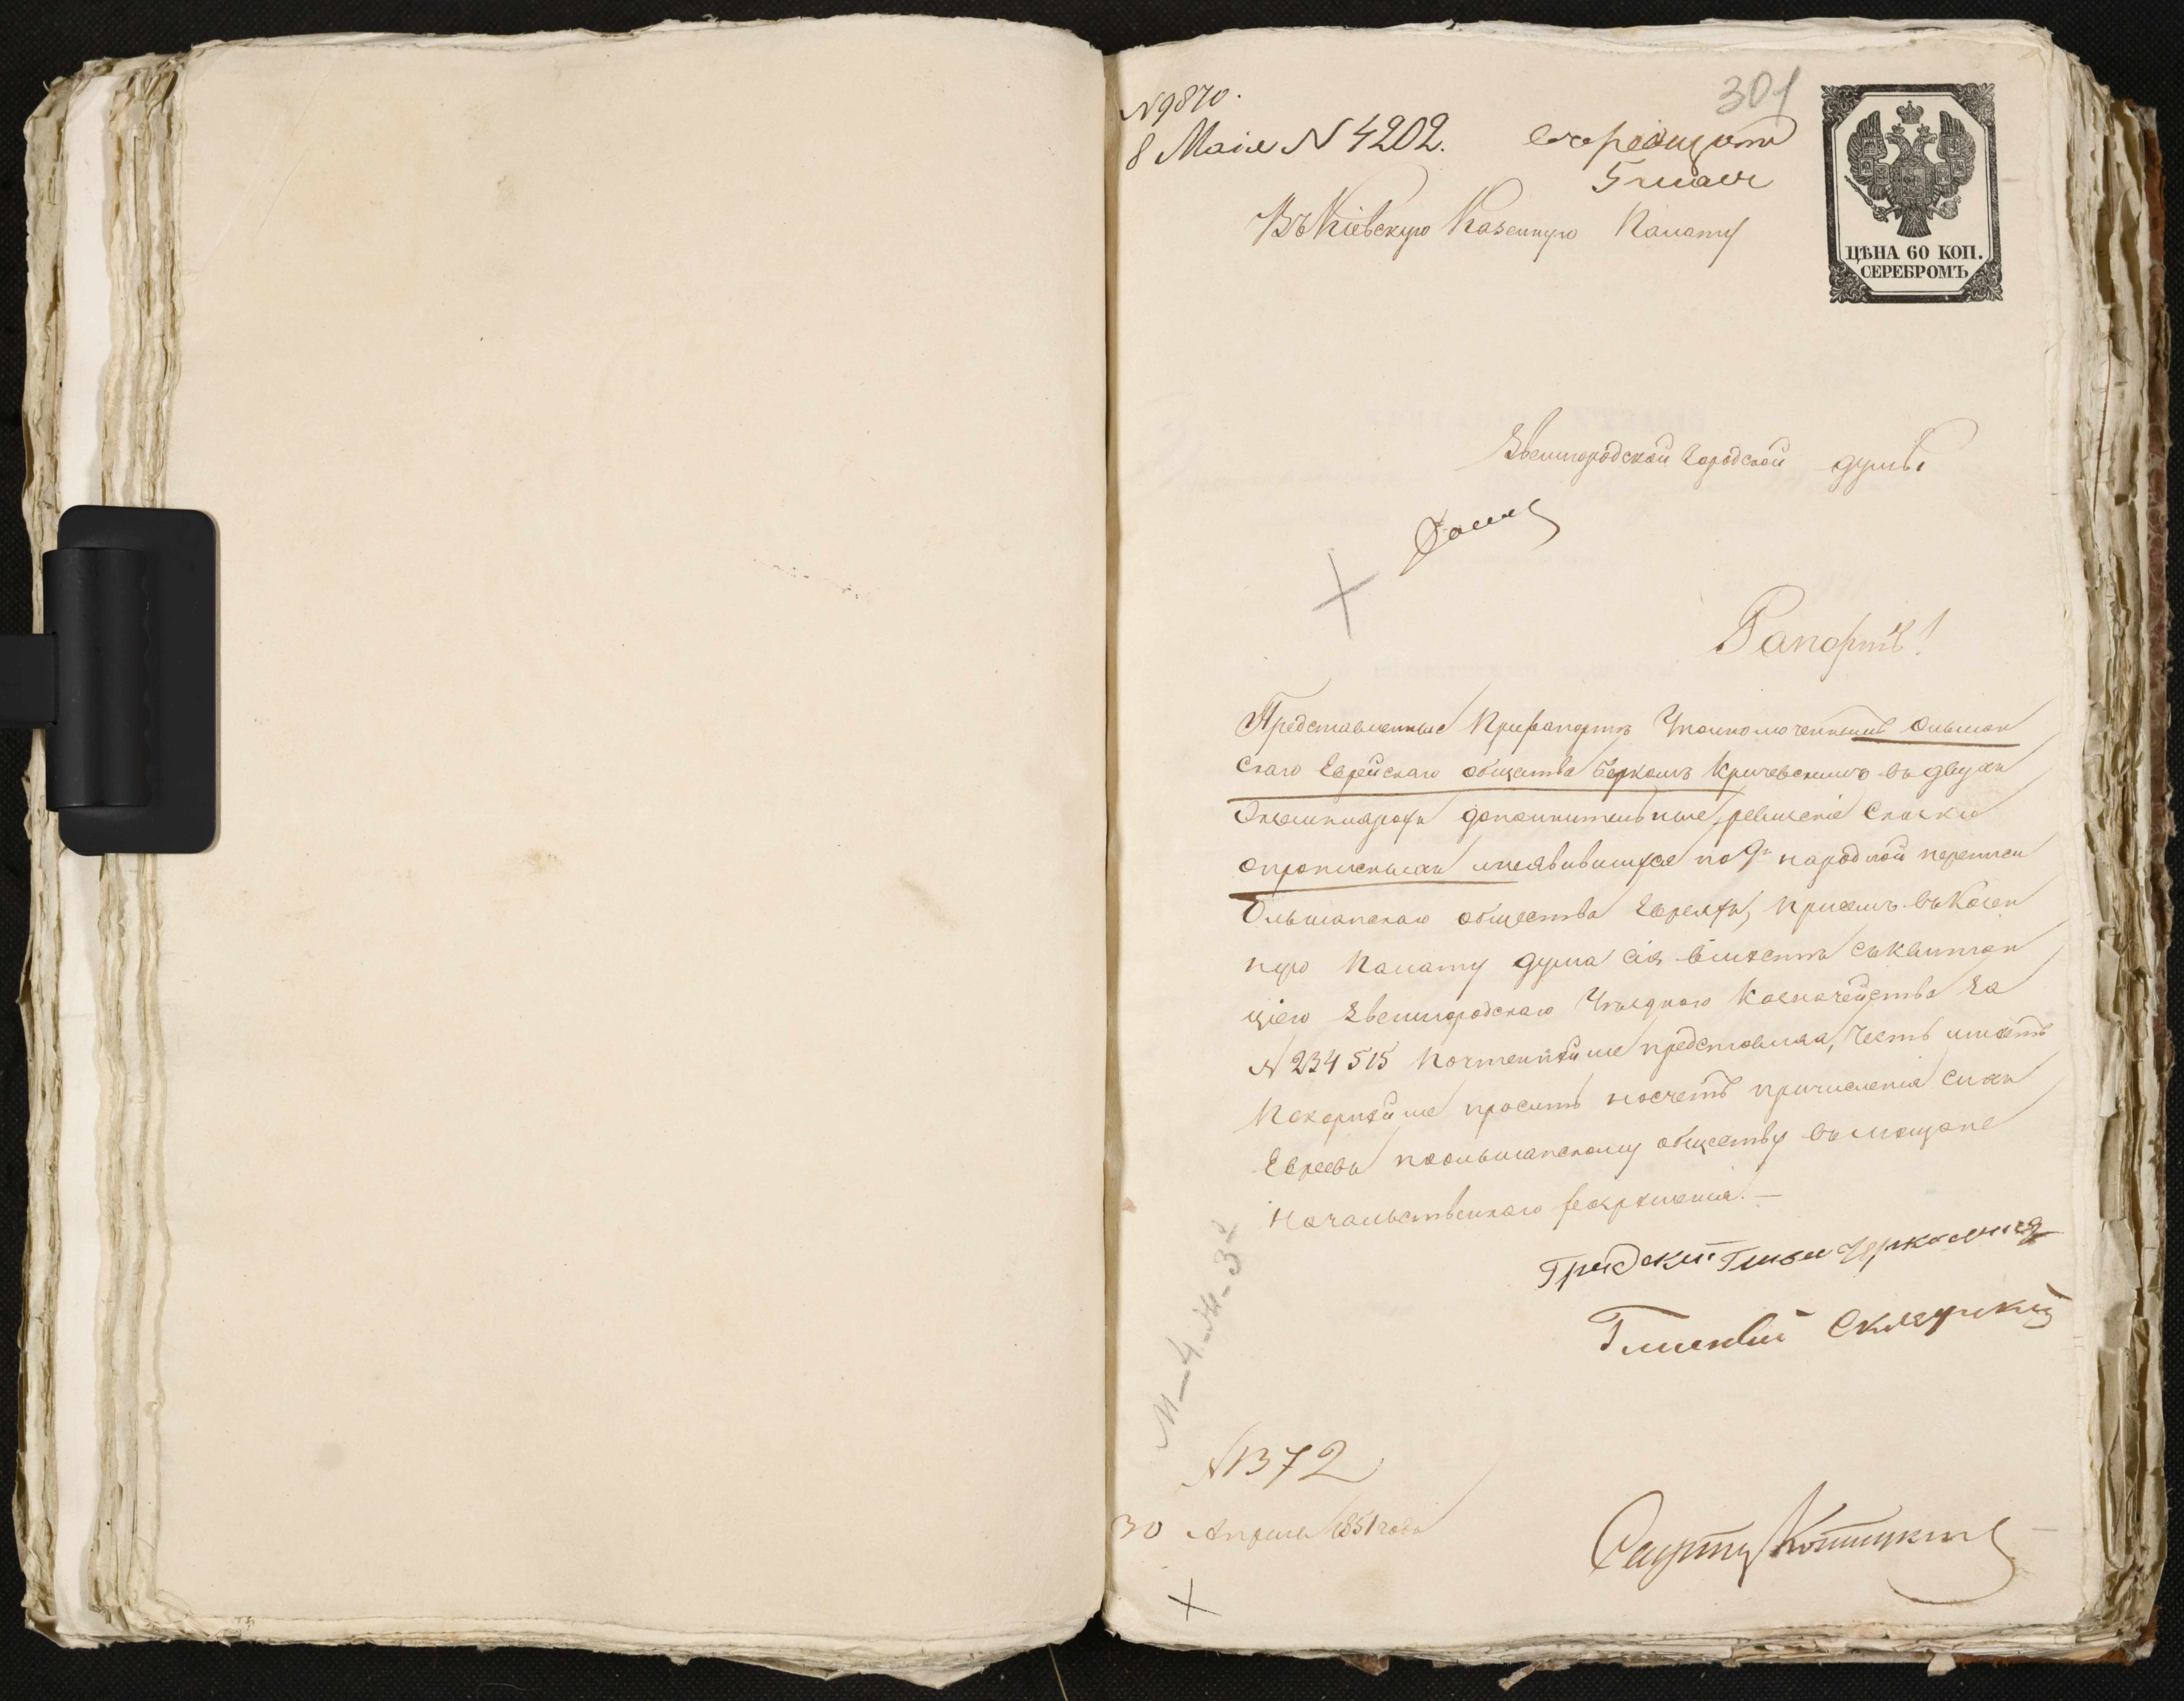 301
N 9870.
8 Маія N 4202.
5 маія
Въ Кіевскую Казенную Палату
ЦѢНА 60 КОП.
СЕРЕБРОМЪ
Звенигородской Городской думы
Рапортъ!
Представленные при рапортѣ Уполномоченнымъ Ольшан
скаго Еврейскаго общества Беркомъ Кричевскимъ въ двухъ
Экземплярахъ дополнительные ревизскіе сказки
о прописныхъ и неявившихся по 9й народной переписи
Ольшанскаго общества Евреяхъ, при семъ въ Казен
ную Палату дума сія вмѣстѣ съ квитан
ціею Звенигородскаго Уѣзднаго Казначейства за
N 234515 почтеннѣйше представляя, честь имѣетъ
покорнѣйше просить насчетъ причисленія сихъ
Евреевъ по ольшанскому обществу въ мещане
начальственнаго разрѣшенія. —
Гласный Склярскій
М-4.-Ж-3
N 1372
30 Апреля 1851 года